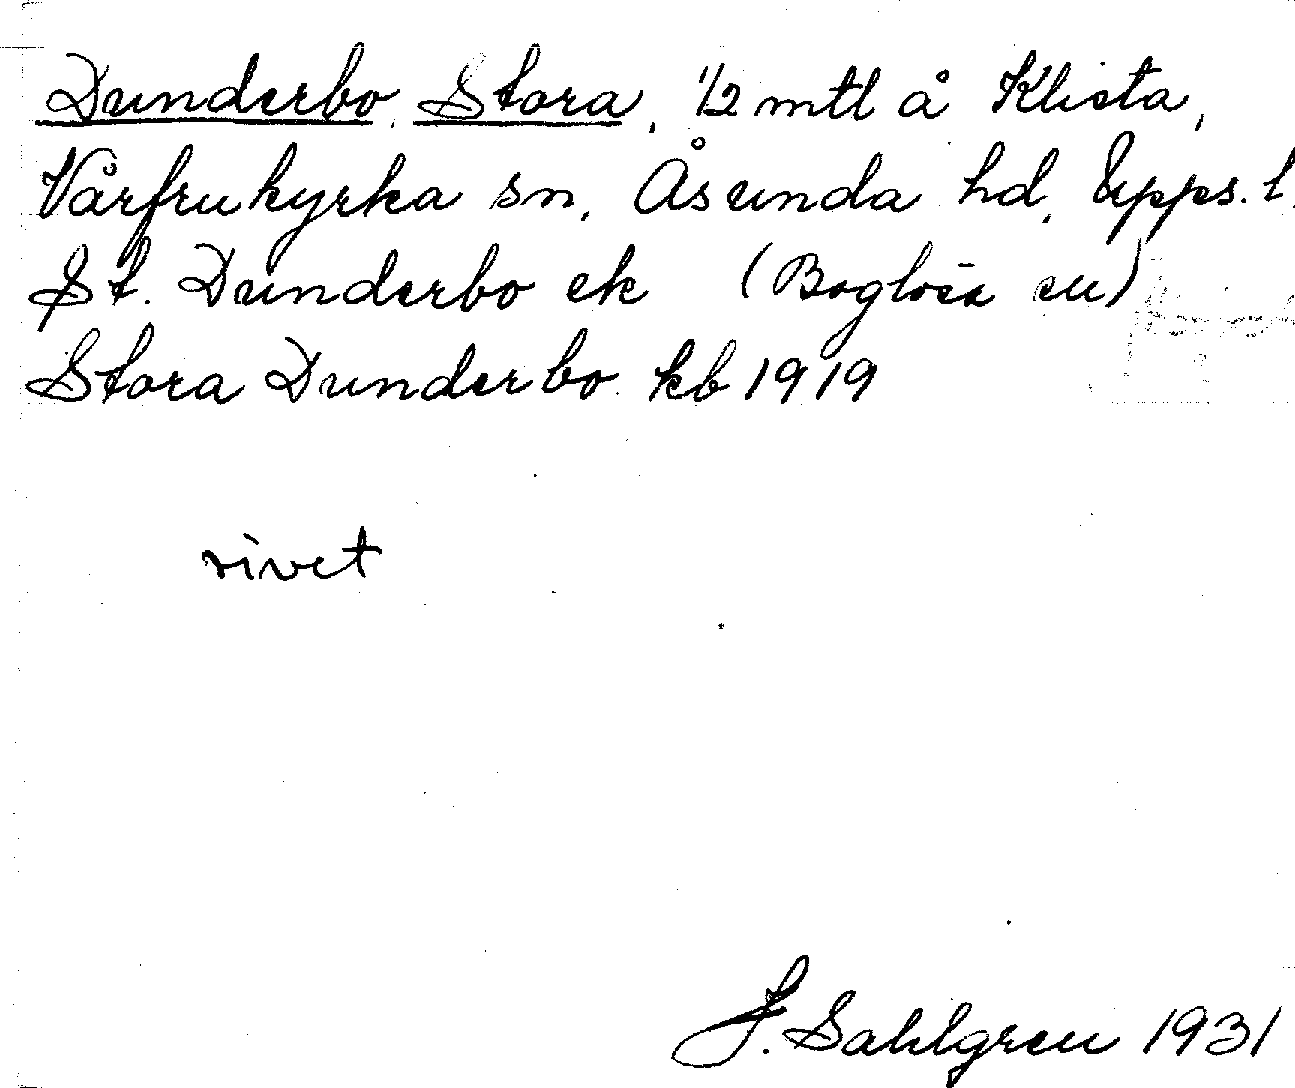 Dunderbo, Stora, 1/2 mtl å Klista,
Vårfrukyrka sn, Åsunda hd, Upps. l.
St. Dunderbo ek (Boglösa sn)
Stora Dunderbo kb 1919
rivet
J. Sahlgren 1931